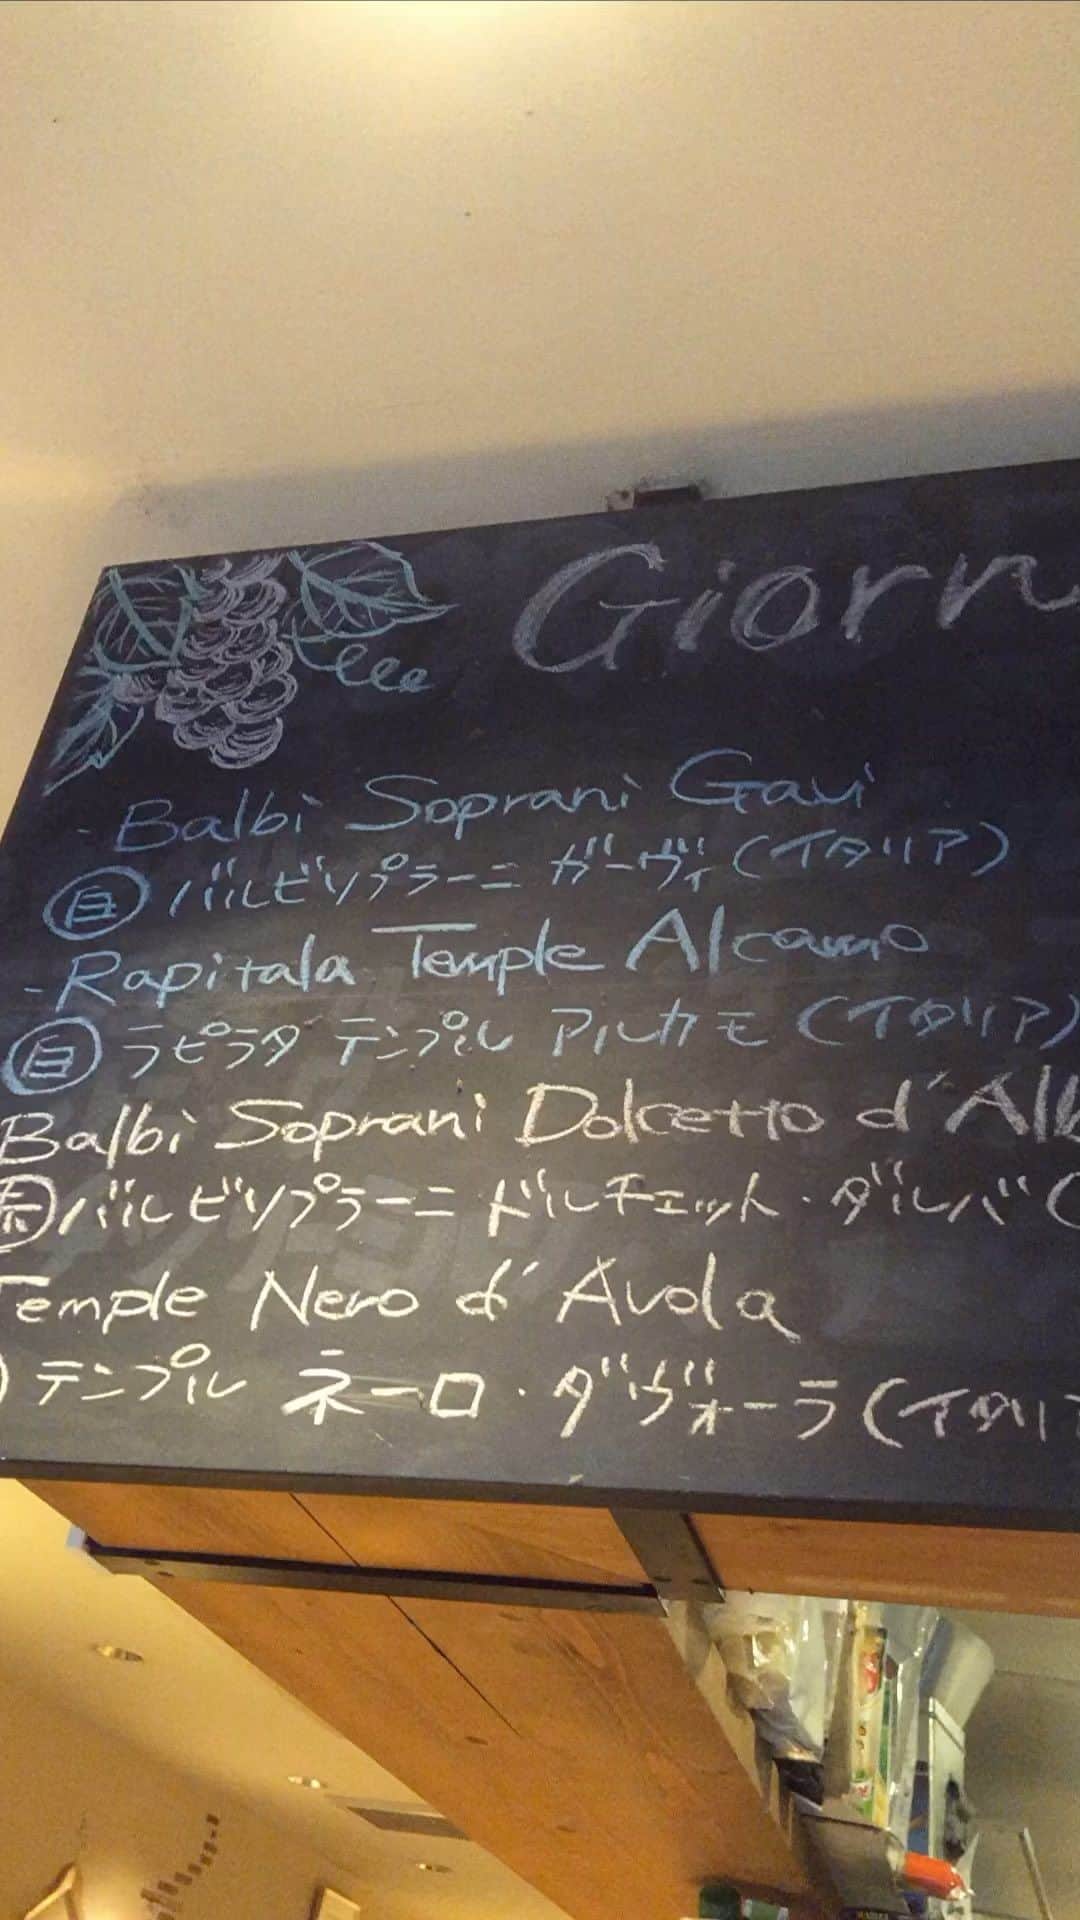 Giorn
- Balbi Soprani Gavi
白 バルビソプラーニ ガーヴィ (イタリア)
- Rapitala Temple Alcamo
白 ラピラタ テンプル アルカモ (イタリア)
Balbi Soprani Dolcetto d'Alb
赤 バルビソプラーニ ドルチェット・ダルバ (
Temple Nero d'Avola
) テンプル ネーロ・ダヴォーラ (イタリア